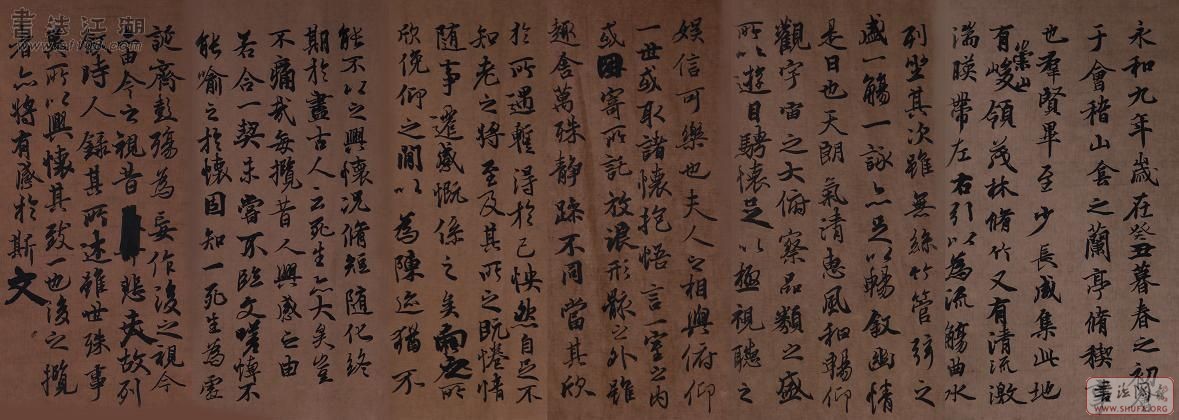 永和九年歲在癸丑暮春之初
于會稽山陰之蘭亭脩稧
也羣賢畢至少長咸集此地
有崇山峻領茂林脩竹又有清流激
湍暎帶左右引以為流觴曲水
列坐其次雖無絲竹管弦之
盛一觴一詠亦足以暢叙幽情
是日也天朗氣清惠風和暢仰
觀宇宙之大俯察品類之盛
所以遊目騁懷足以極視聽之
娛信可樂也夫人之相與俯仰
一世或取諸懷抱悟言一室之內
或因寄所託放浪形骸之外雖
趣舍萬殊靜躁不同當其欣
於所遇暫得於己怏然自足不
知老之將至及其所之既惓情
隨事遷感慨係之矣向之所
欣俛仰之閒以為陳迹猶不
能不以之興懷況脩短隨化終
期於盡古人云死生亦大矣豈
不痛哉每攬昔人興感之由
若合一契未嘗不臨文嗟悼不
能喻之於懷固知一死生為虛
誕齊彭殤為妄作後之視今
亦由今之視昔悲夫故列
叙時人錄其所述雖世殊事
異所以興懷其致一也後之攬
者亦將有感於斯文
書法江湖
書法网
WWW.SHUFA.ORG